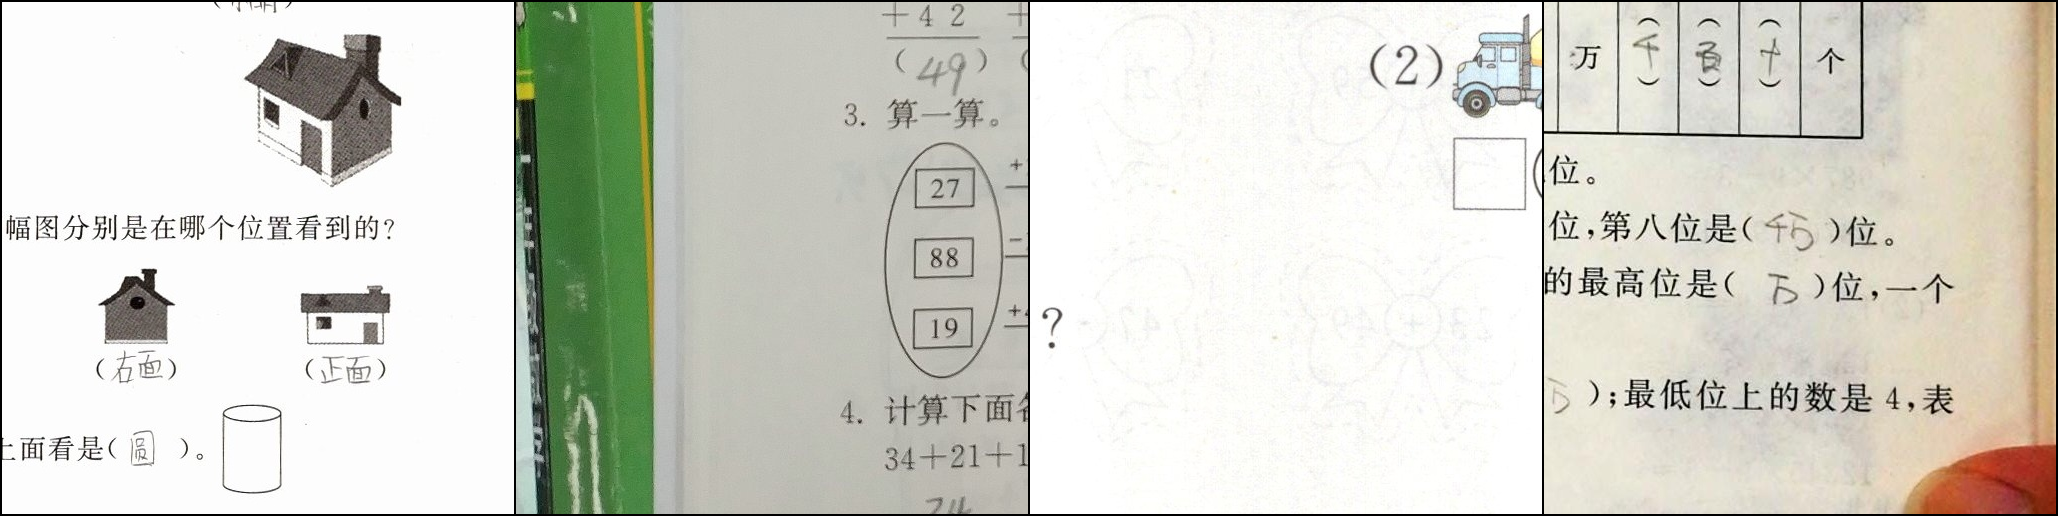 幅图分别是在哪个位置看到的?
(右面) (正面)
上面看是(圆)。
+42
(49)
3. 算一算。
27
88
19
4. 计算下面各
34+21+1
74
(2)
?
万 (千) (百) (十) 个
位。
位,第八位是(千万)位。
的最高位是(万)位,一个
万);最低位上的数是4,表